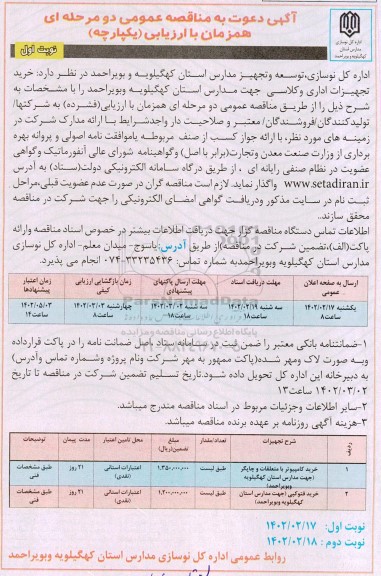 آگهی دعوت به مناقصه عمومی دو مرحله ای
همزمان با ارزیابی (یکپارچه)
نوبت اول
اداره کل نوسازی
مدارس استان
کهگیلویه و بویراحمد
اداره کل نوسازی،توسعه وتجهیز مدارس استان کهگیلویه و بویراحمد در نظر دارد: خرید
تجهیزات اداری وکلاسی جهت مدارس استان کهگیلویه وبویراحمد را با مشخصات به
شرح ذیل را از طریق مناقصه عمومی دو مرحله ای همزمان با ارزیابی(فشرده) به شرکتها/
تولیدکنندگان/فروشندگان/ معتبر و صلاحیت دار واجدشرایط با ارائه مدارک شرکت در
زمینه های مورد نظر، با ارائه جواز کسب از صنف مربوطه یاموافقت نامه اصولی و پروانه بهره
برداری از وزارت صنعت معدن وتجارت(برابر با اصل) وگواهینامه شورای عالی آنفورماتیک وگواهی
عضویت در نظام صنفی رایانه ای ، از طریق درگاه سامانه الکترونیکی دولت(ستاد) به آدرس
www.setadiran.ir واگذار نماید. لازم است مناقصه گران در صورت عدم عضویت قبلی،مراحل
ثبت نام در سایت مذکور ودریافت گواهی امضای الکترونیکی را جهت شرکت در مناقصه
محقق سازند..
اطلاعات تماس دستگاه مناقصه گزار جهت دریافت اطلاعات بیشتر در خصوص اسناد مناقصه وارائه
پاکت(الف)،تضمین شرکت در مناقصه)از طریق آدرس:یاسوج- میدان معلم- اداره کل نوسازی
مدارس استان کهگیلویه وبویراحمدبه شماره تماس: ۳۳۲۳۵۴۳۶-۰۷۴ انجام می پذیرد.
ارسال به صفحه اعلان عمومی
مهلت دریافت اسناد
مهلت ارسال پاکتهای پیشنهادی
زمان بازگشایی ارزیابی کیفی
زمان اعتبار پیشنهادها
یکشنبه ۱۴۰۲/۰۲/۱۷ ساعت۸
سه شنبه ۱۴۰۲/۰۲/۱۹ ساعت۱۸
سه شنبه ۱۴۰۲/۰۳/۰۲ ساعت۱۸
چهارشنبه ۱۴۰۲/۰۳/۰۳ ساعت۸
۱۴۰۲/۰۵/۰۳ ساعت۱۴
۱-ضمانتنامه بانکی معتبر را ضمن ثبت در سامانه ستاد اصل ضمانت نامه را در پاکت قرارداده
وبه صورت لاک ومهر شده(پاکت ممهور به مهر شرکت ونام پروژه وشماره تماس وآدرس)
به دبیرخانه این اداره کل تحویل داده شود.تاریخ تسلیم تضمین شرکت در مناقصه تا تاریخ
۱۴۰۲/۰۳/۰۲ ساعت۱۳
۲-سایر اطلاعات وجزئیات مربوط در اسناد مناقصه مندرج میباشد.
۳-هزینه آگهی روزنامه بر عهده برنده مناقصه میباشد.
ردیف
شرح تجهیزات
تعداد/مقدار
مبلغ تضمین(ریال)
محل تامین اعتبار
مدت پیمان
توضیحات
۱
خرید کامپیوتر با متعلقات و چاپگر (جهت مدارس استان کهگیلویه وبویراحمد)
طبق لیست
۱,۳۵۰,۰۰۰,۰۰۰
اعتبارات استانی (نقدی)
۲۱ روز
طبق مشخصات فنی
۲
خرید فتوکپی (جهت مدارس استان کهگیلویه وبویراحمد)
طبق لیست
۱,۲۰۰,۰۰۰,۰۰۰
اعتبارات استانی (نقدی)
۲۱ روز
طبق مشخصات فنی
نوبت اول: ۱۴۰۲/۰۲/۱۷
نوبت دوم : ۱۴۰۲/۰۲/۱۸
روابط عمومی اداره کل نوسازی مدارس استان کهگیلویه وبویراحمد